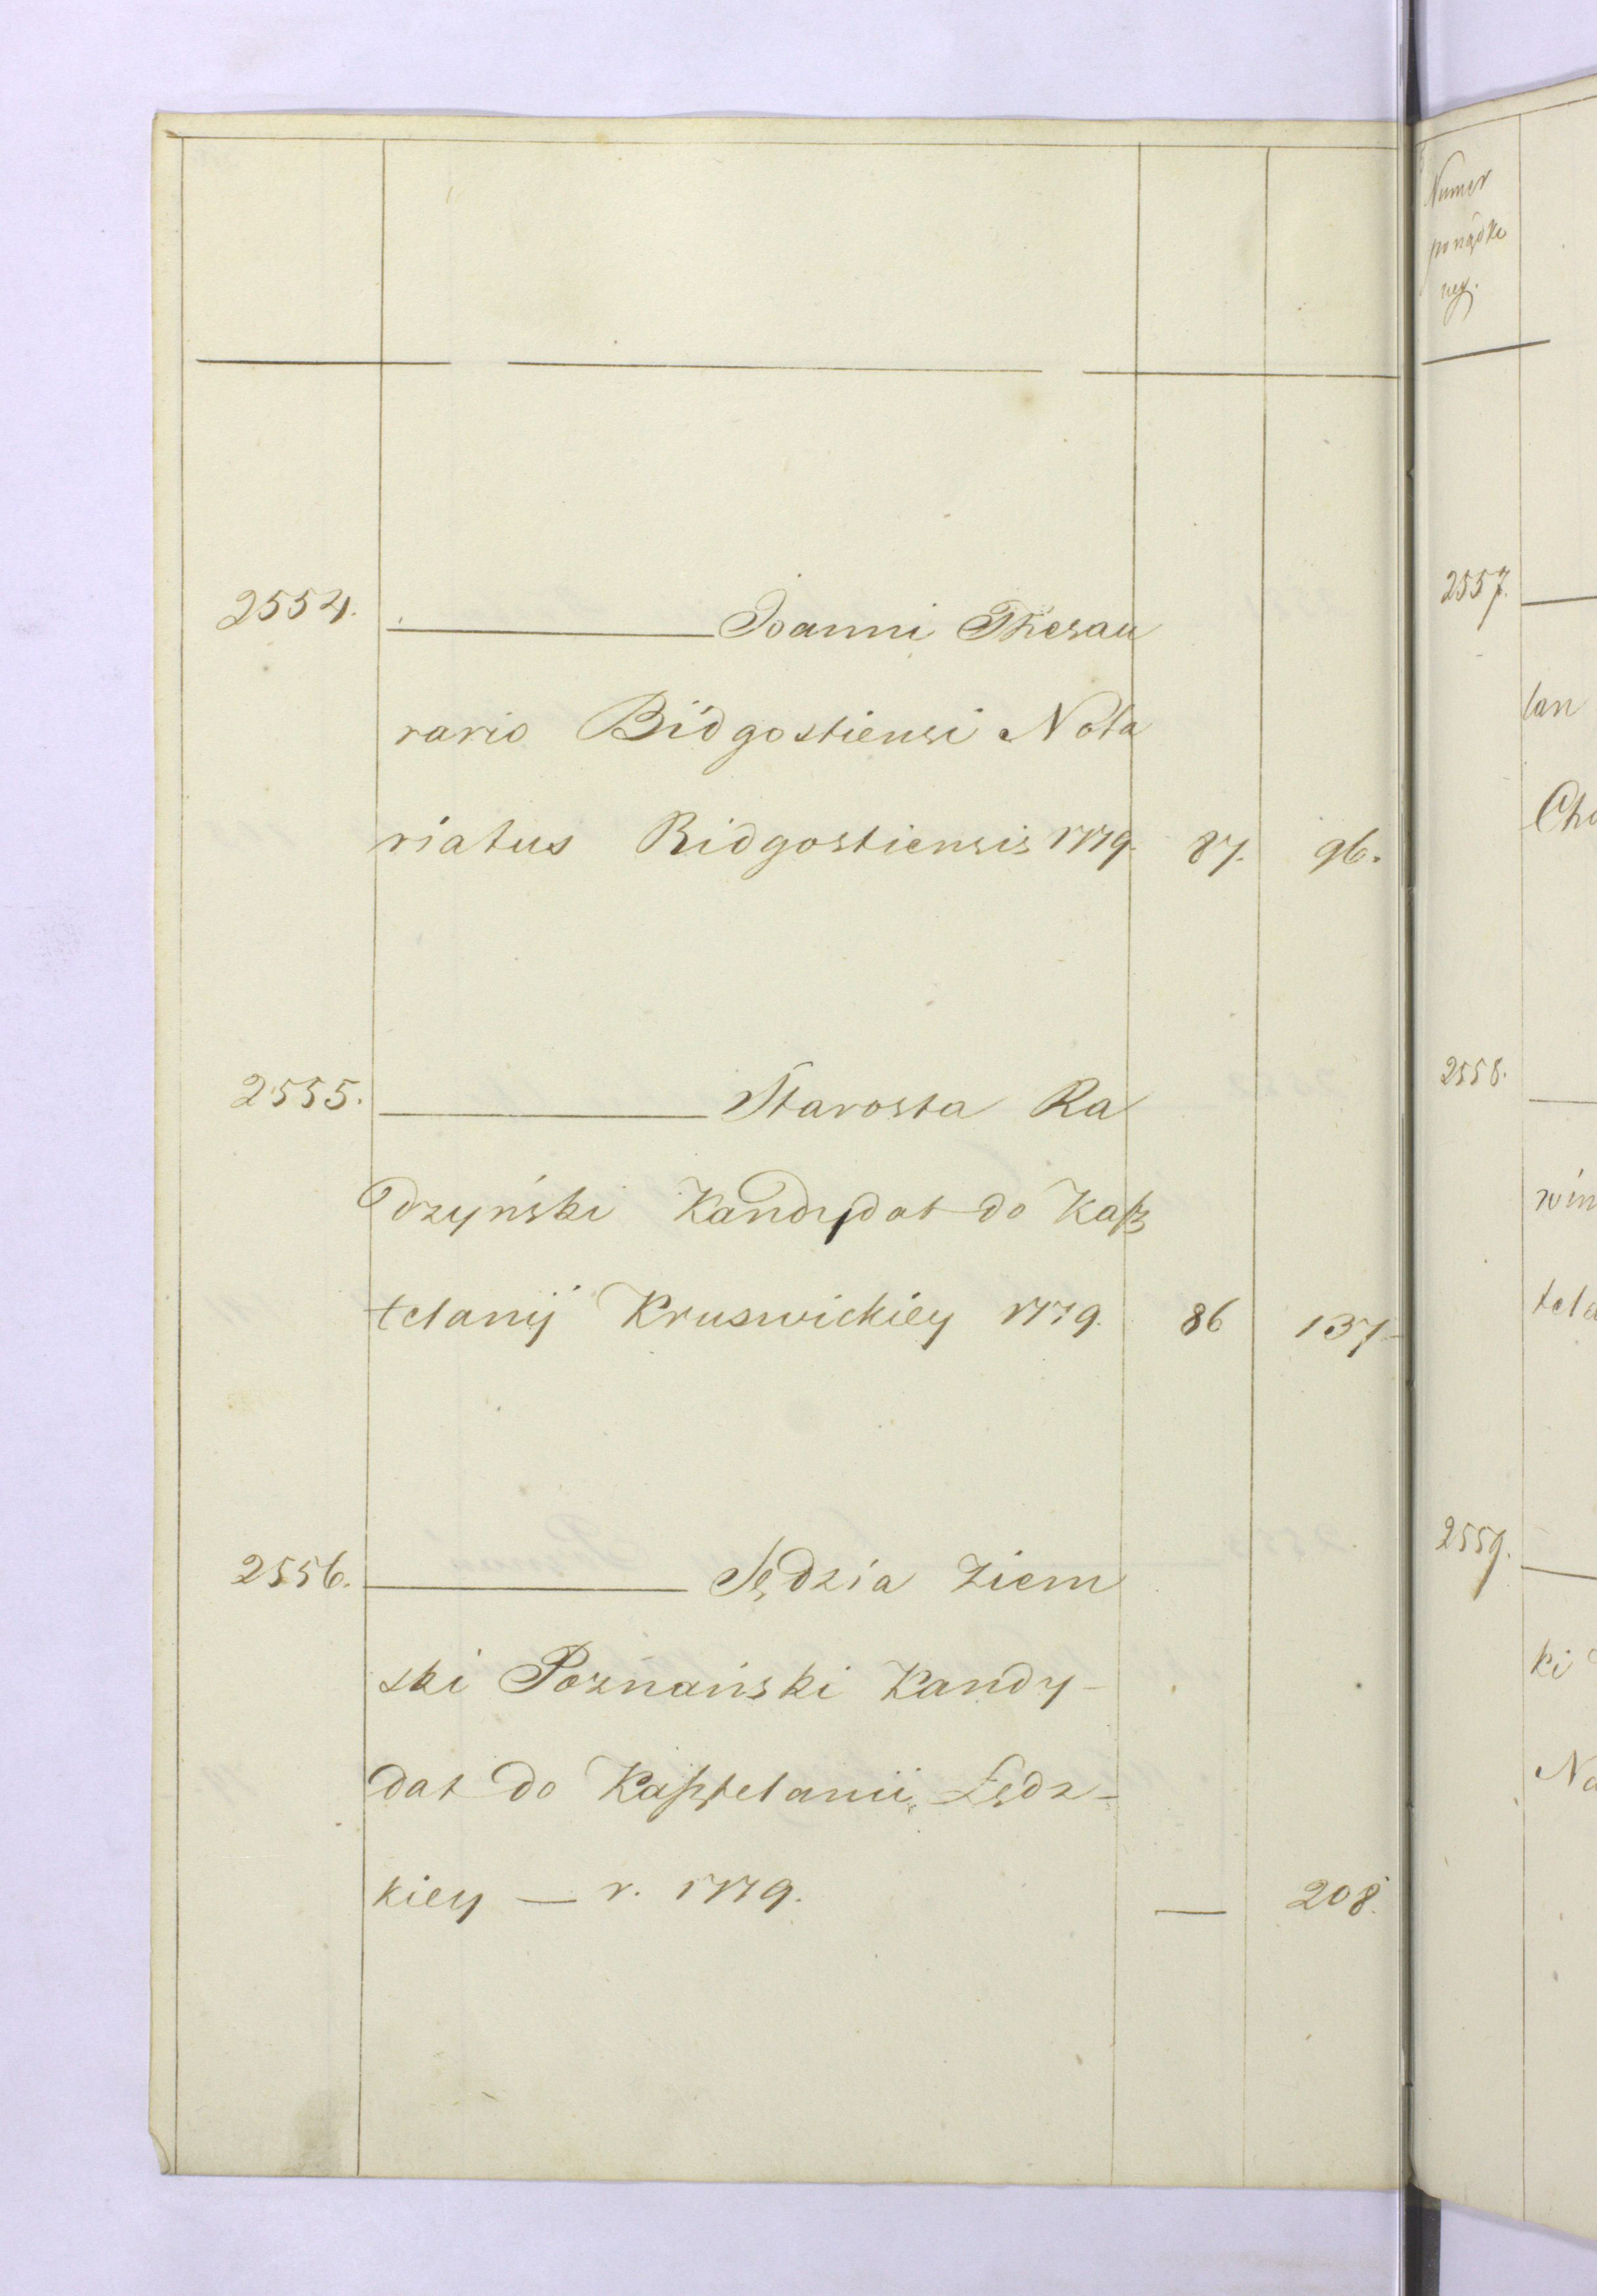 2554. ——— Joanni Thesau
rario Bidgostiensi Nota
riatus Bidgostiensis 1779. 87. 96.
2555. ——— Starosta Ra
dzyński Kandydat do Kasz
telanij Kruswickiey 1779. 86 137
2556. ——— Sędzia Ziem
ski Poznański Kandy-
dat do Kasztelanii Lędz-
kiey — r. 1779. — 208.
Numer
porządko
wy.
2557.
lan
2558.
win
tela
2559.
ki